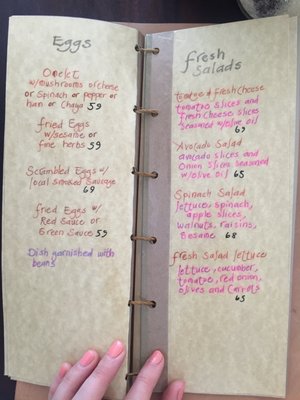 Eggs
Omelet
w/mushrooms or cheese
or Spinach or pepper or
ham or Chaya 59
fried Eggs
w/sesame or
fine herbs 59
Scrambled Eggs w/
local Smoked Sausage
69
fried Eggs w/
Red Sauce or
Green Sauce 59
Dish garnished with
beans
fresh
Salads
Fresh Cheese
tomatoe slices and
fresh cheese slices
seasoned w/olive oil
69
Avocado Salad
avocado slices and
Onion slices Seasoned
w/olive oil 65
Spinach Salad
lettuce, spinach,
apple slices,
walnuts, raisins,
Sesame 68
fresh Salad lettuce
lettuce, cucumber,
tomatoe, red onion,
olives and carrots
65